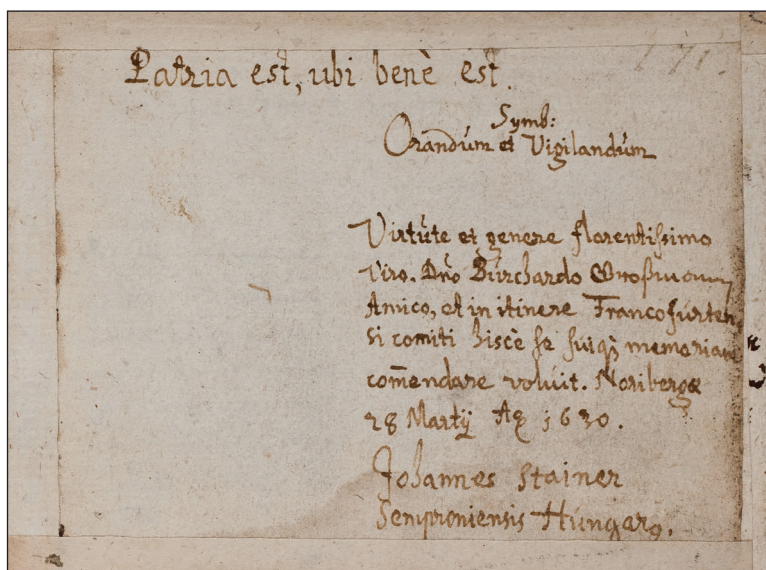 171.
Patria est, ubi benè est.
Symb:
Orandum et Vigilandum
Virtute et genere florentissimo
Viro. Dño Burchardo
Amico, et in itinere Francofurten
si comiti hisce se suiq; memoriam
com̄endare voluit. Noribergæ
28 Martij Aȩ 1630.
Johannes Stainer
Semproniensis Hungarꝯ.